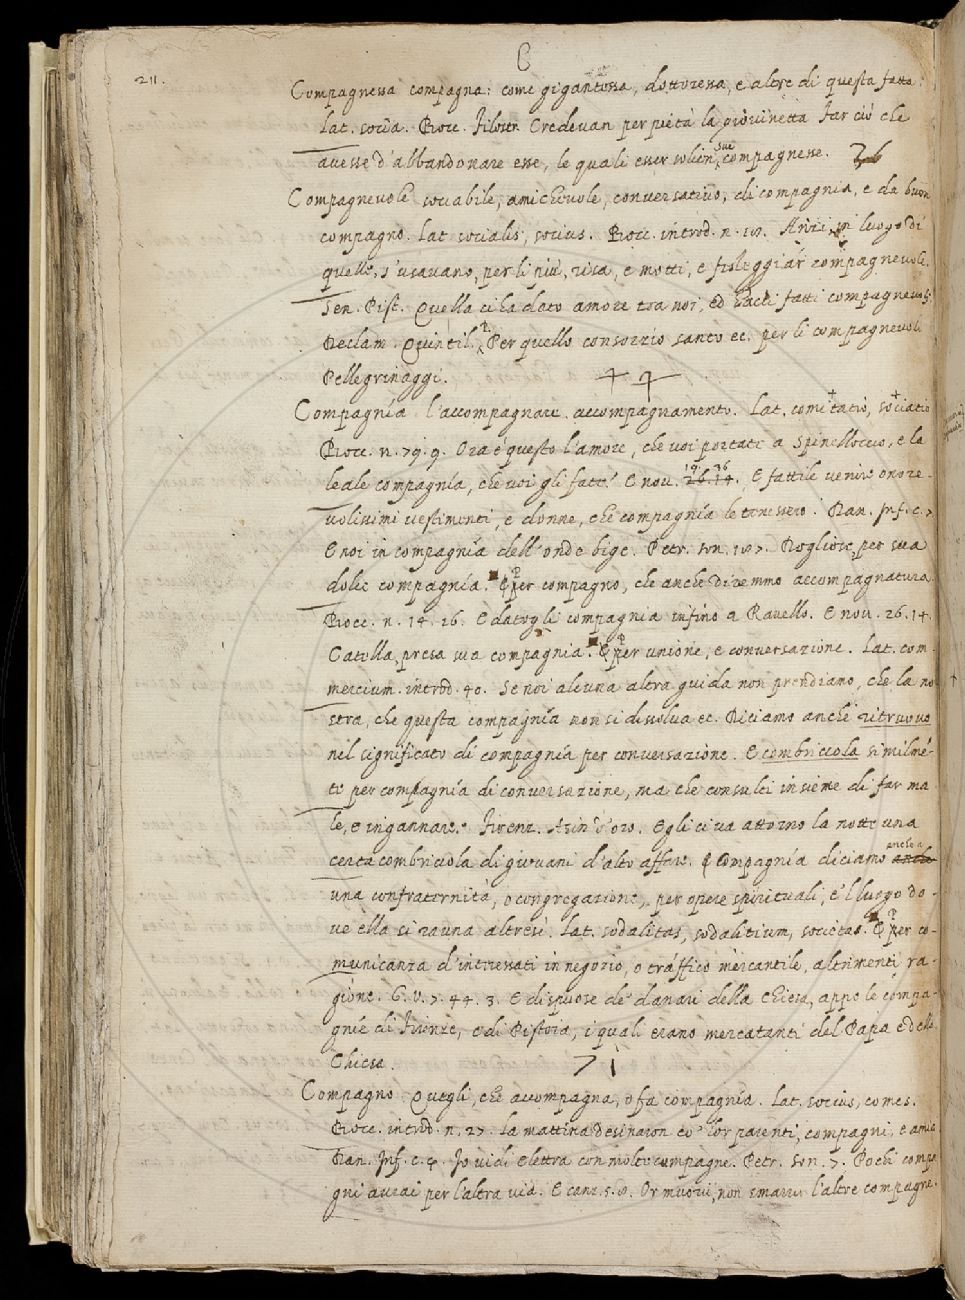 C
211.
Compagnessa compagna: come gigantessa, dottoressa, e altre di questa fatta.
Lat. socia. Bocc. Filostr. Credevan per pietà la giovinetta Far ciò che
avesse d'abbandonare esse, le quali esser solien sue compagnesse.
Compagnevole sociabile, amichevole, conversativo, di compagnia, e da buon
compagno. Lat. socialis, socius. Bocc. introd. n. Anzi in luogo di
quelle, s'usavano, per li più, risa, e motti, e festeggiar compagnevole.
Sen. Pist. Quella ci ha dato amore tra noi, ed hacci fatti compagnevoli.
Declam. Quintil. P. Per quello consorzio santo ec. per li compagnevoli
Pellegrinaggi.
Compagnía l'accompagnare. accompagnamento. Lat. comitatio, sociatio
Bocc. n. 79. 9. Ora è questo l'amore, che voi portate a Spinelloccio, e la
leale compagnía, che voi gli fate? E nov. 19. 36. E fattile venire onore-
volissimi vestimenti, e donne, che compagnía le tenessero. Dan. Inf. c. 7
E noi in compagnía dell'onde bige. Petr. son.
dolce compagnía. E per compagno, che anche diremmo accompagnatura
Bocc. n. 14. 16. E datogli compagnia infino a Ravello. E nov. 26. 14.
Catella, presa sua compagnia. E per unione, e conversazione. Lat. com-
mercium. introd. 40. Se noi alcuna altra guida non prendiamo, che la no
stra, che questa compagnía non si dissolva ec. Diciamo anche ritruovo
nel significato di compagnía per conversazione. E combriccola similmé-
te per compagnía di conversazione, ma che consulti insieme di far ma
le, e ingannare. Firenz. Asin d'oro. Egli ci va attorno la notte una
certa combriccola di giovani d'alto affare. Compagnía diciamo anche a
una confraternità, o congregazione, per opere spirituali, e 'l luogo do-
ve ella si rauna altresì. Lat. sodalitas, sodalitium, societas. E per co-
municanza d'interessati in negozio, o tráffico mercantile, altrimenti ra-
gione. G. V. 7. 44. 3. E dispuose de' danari della Chiesa, appo le compa-
gníe di Firenze, e di Pistoia, i quali erano mercatanti del Papa e della
Chiesa.
Compagno Quegli, che accompagna, o fa compagnía. Lat. socius, comes.
Bocc. introd. n. 27. La mattina desinaron co' lor parenti, compagni, e amici
Dan. Inf. c. 4. Io vidi Elettra con molti compagni. Petr. son. 7. Pochi compa
gni avrai per l'altra via. E canz. 5. Or muovi, non smarrir l'altre compagne.